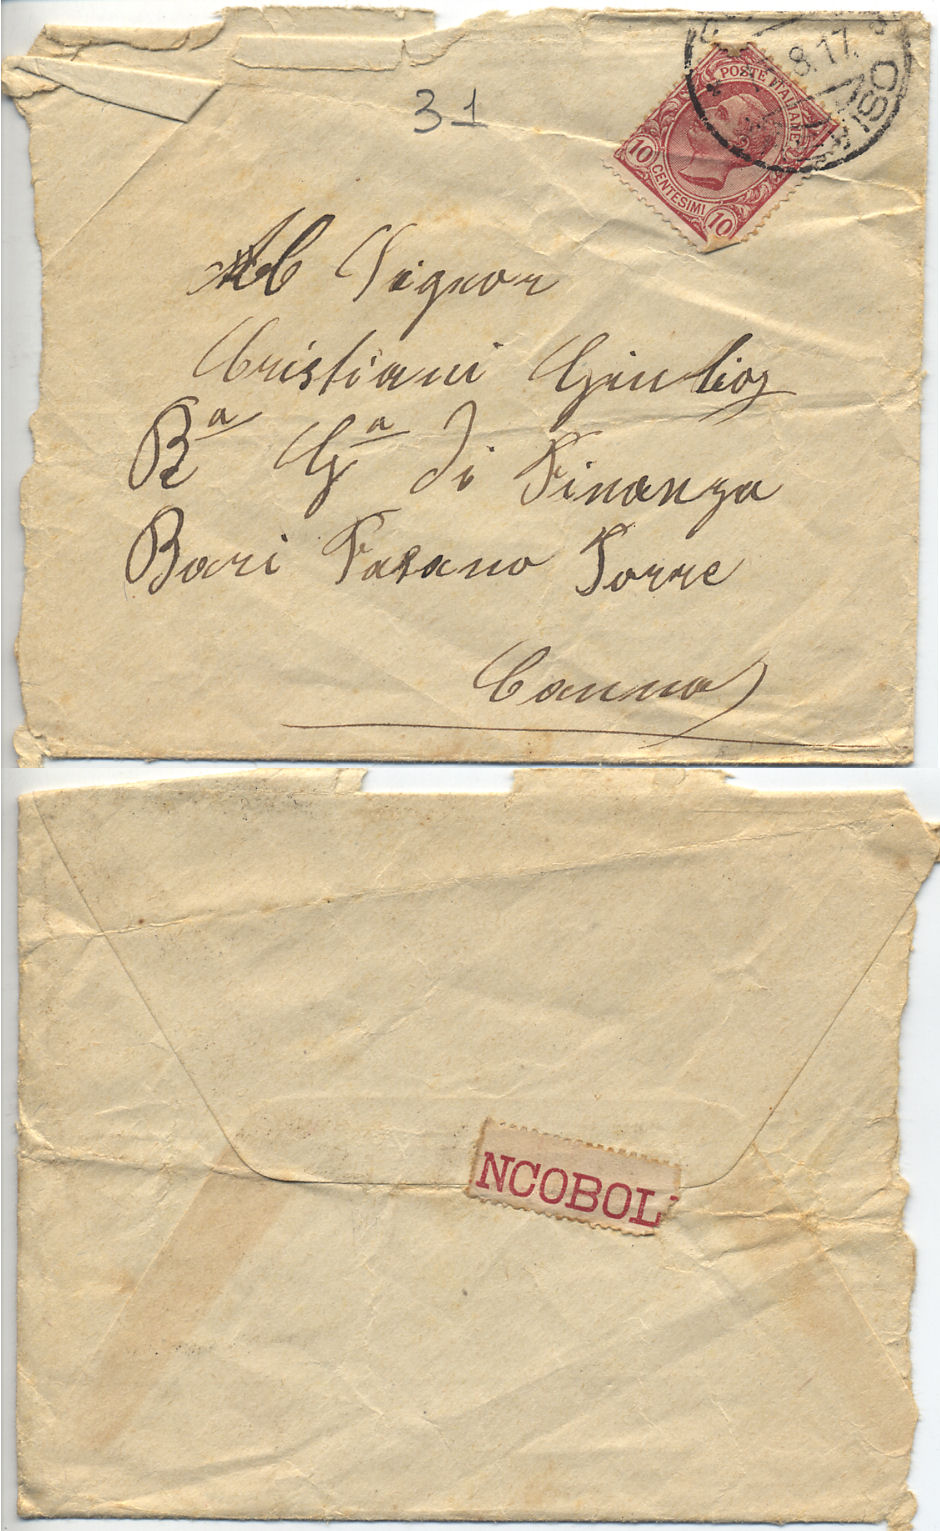 31
POSTE ITALIANE
10 CENTESIMI 10
8.17.
Al Signor
Cristiani Giulio
Ra Ga di Finanza
Bari Fasano Torre
Canna
NCOBOL